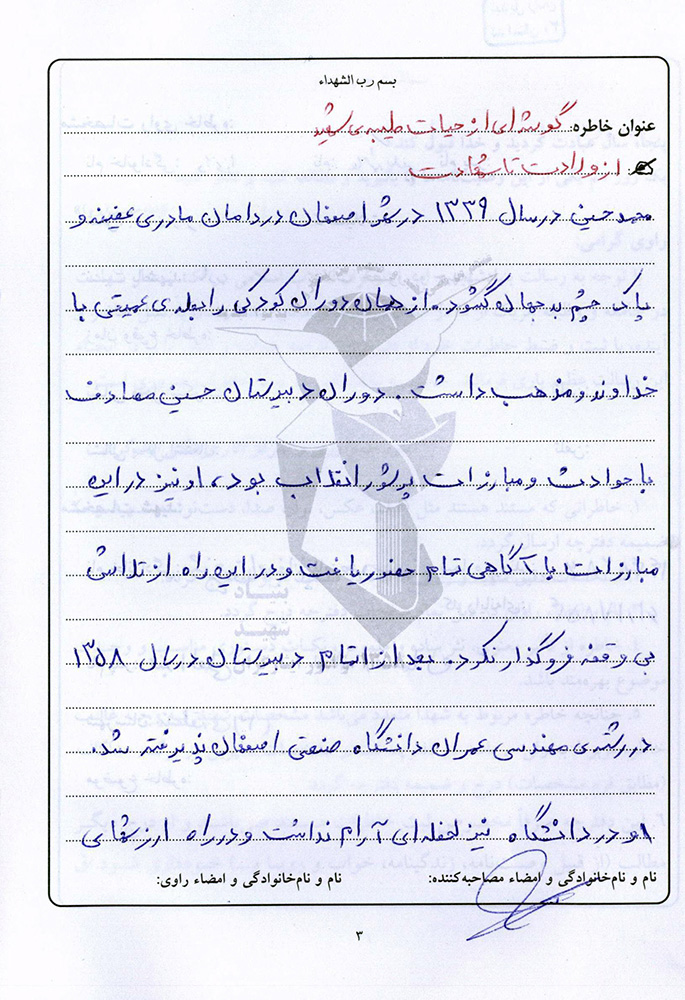 بسم رب الشهداء
عنوان خاطره: گوشه‌ای از حیات طیبه‌ی شهید
از ولادت تا شهادت
محمد حسین در سال ۱۳۳۹ در شهر اصفهان در دامان مادری عفیفه و
پاک چشم به جهان گشود. از همان دوران کودکی رابطه‌ی عمیقی با
خداوند و مذهب داشت. دوران دبیرستان حسین مصادف
با حوادث و مبارزات پرشور انقلاب بود، او نیز در این
مبارزات با آگاهی تمام حضور یافت و در این راه از تلاش
بی وقفه فروگذار نکرد. بعد از اتمام دبیرستان در سال ۱۳۵۸
در رشته‌ی مهندسی عمران دانشگاه صنعتی اصفهان پذیرفته شد.
او در دانشگاه نیز لحظه‌ای آرام نداشت و در راه ارزشهای
نام و نام‌خانوادگی و امضاء مصاحبه‌کننده: نام و نام‌خانوادگی و امضاء راوی:
۳